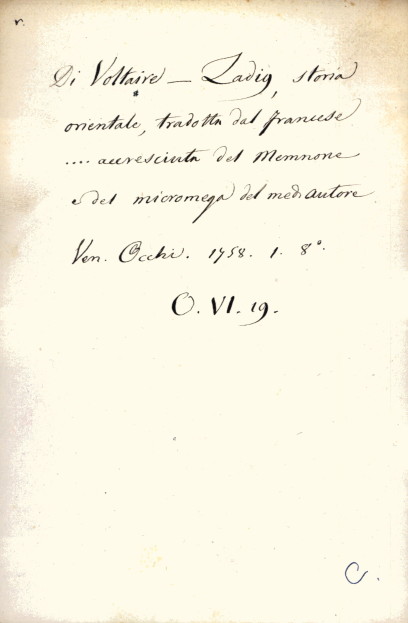 v.
Di Voltaire — Zadig, storia
orientale, tradotta dal francese
.... accresciuta del Memnone
e del micromega del med. autore
Ven. Occhi. 1758. 1. 8°.
O. VI. 19.
C.